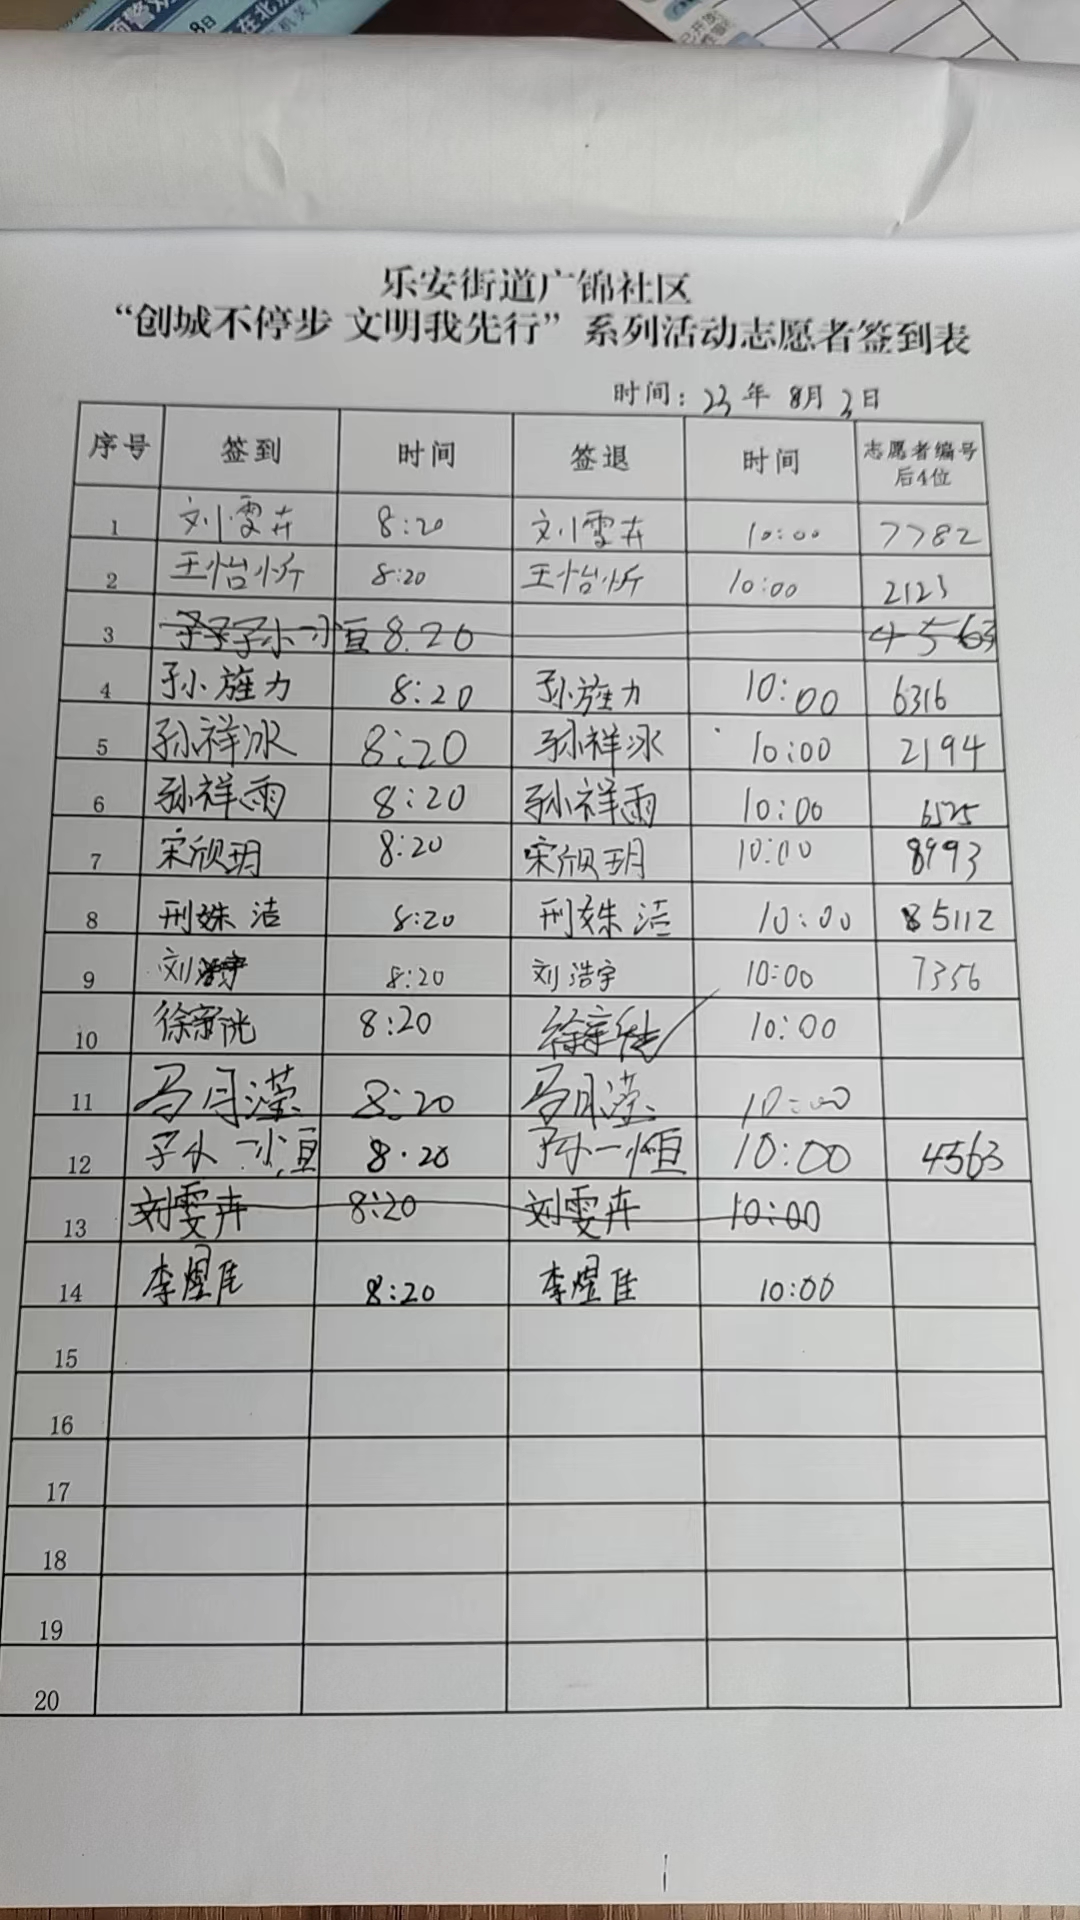 8日
乐安街道广锦社区
“创城不停步 文明我先行”系列活动志愿者签到表
时间：23年8月3日
序号 签到 时间 签退 时间 志愿者编号后4位
1 刘雯卉 8:20 刘雯卉 10:00 7782
2 王怡忻 8:20 王怡忻 10:00 2123
3 孙一恒 8.20 4563
4 孙旌力 8:20 孙旌力 10:00 6316
5 孙祥冰 8:20 孙祥冰 10:00 2194
6 孙祥雨 8:20 孙祥雨 10:00 6525
7 宋欣玥 8:20 宋欣玥 10:00 8993
8 刑姝洁 8:20 刑姝洁 10:00 85112
9 刘浩宇 8:20 刘浩宇 10:00 7356
10 8:20 10:00
11 马月滢 8:20 马月滢 10:00
12 孙一恒 8.20 孙一恒 10:00 4563
13 刘雯卉 8:20 刘雯卉 10:00
14 李煜佳 8:20 李煜佳 10:00
15
16
17
18
19
20